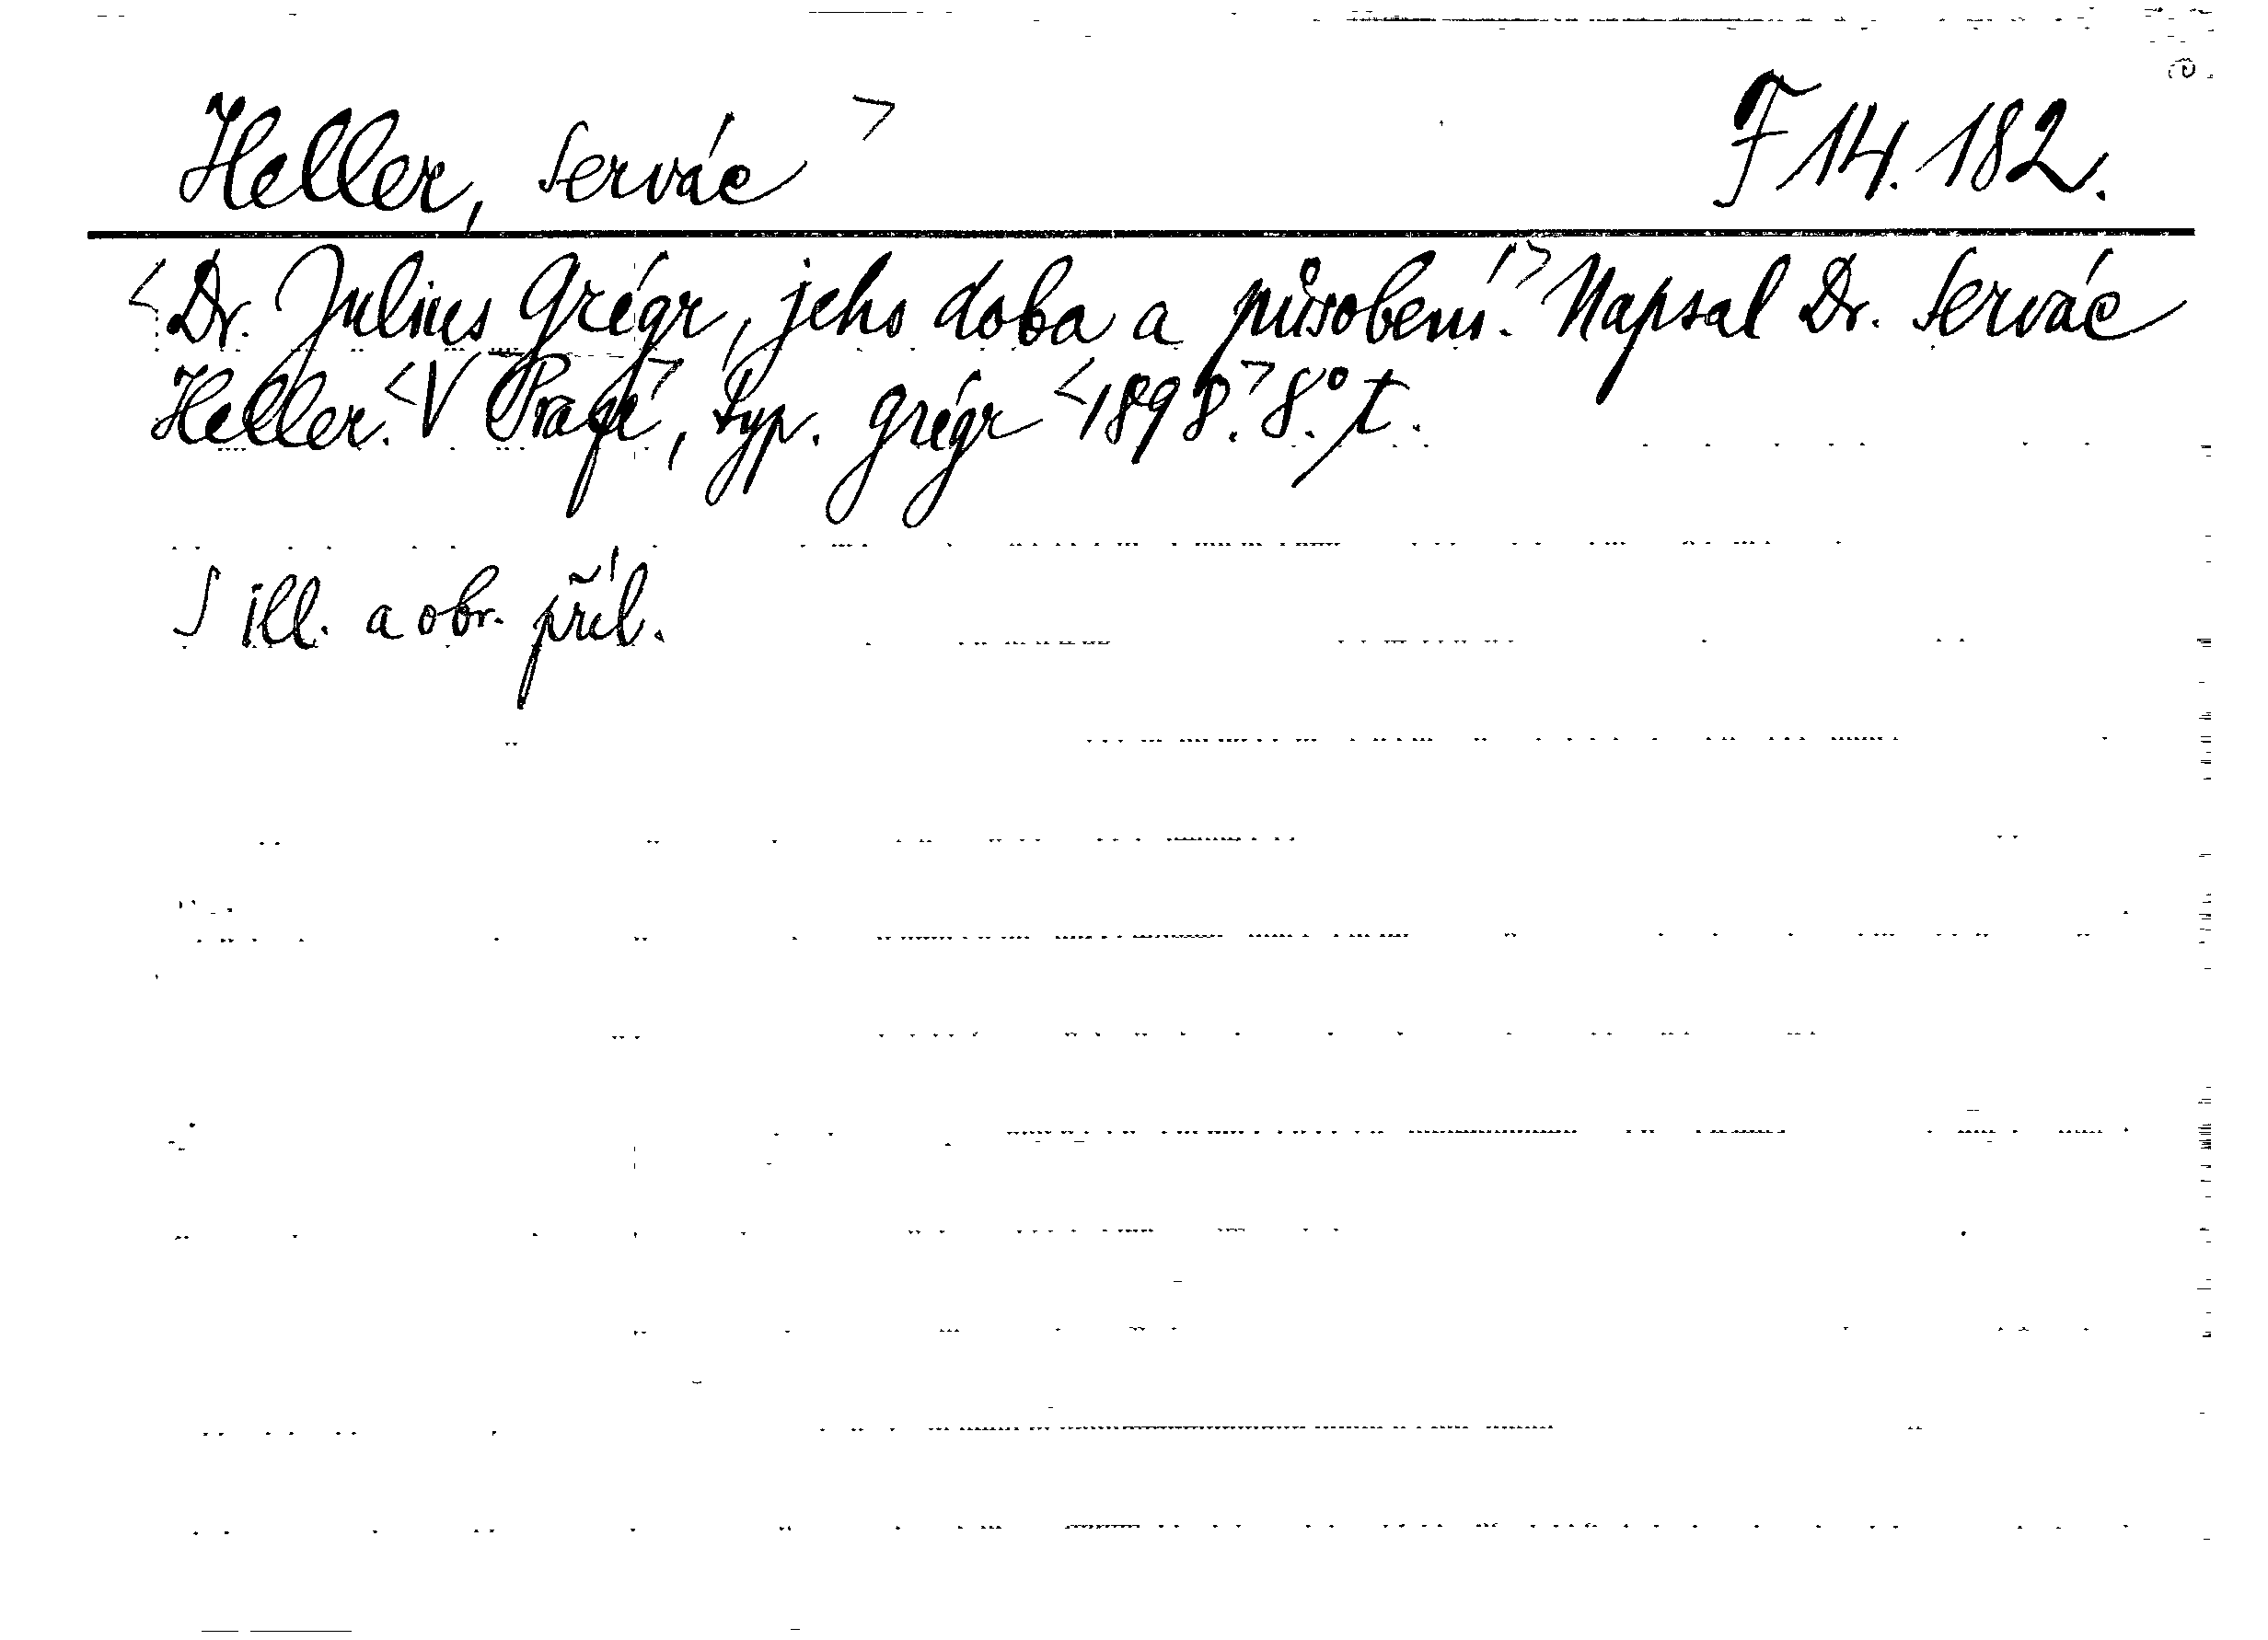 Heller, Servác > F 14.182.
<Dr. Julius Grégr, jeho doba a působení.> Napsal Dr. Servác
Heller. <V Praze>, typ. Grégr <1898.> 8° t.
S ill. a obr. příl.